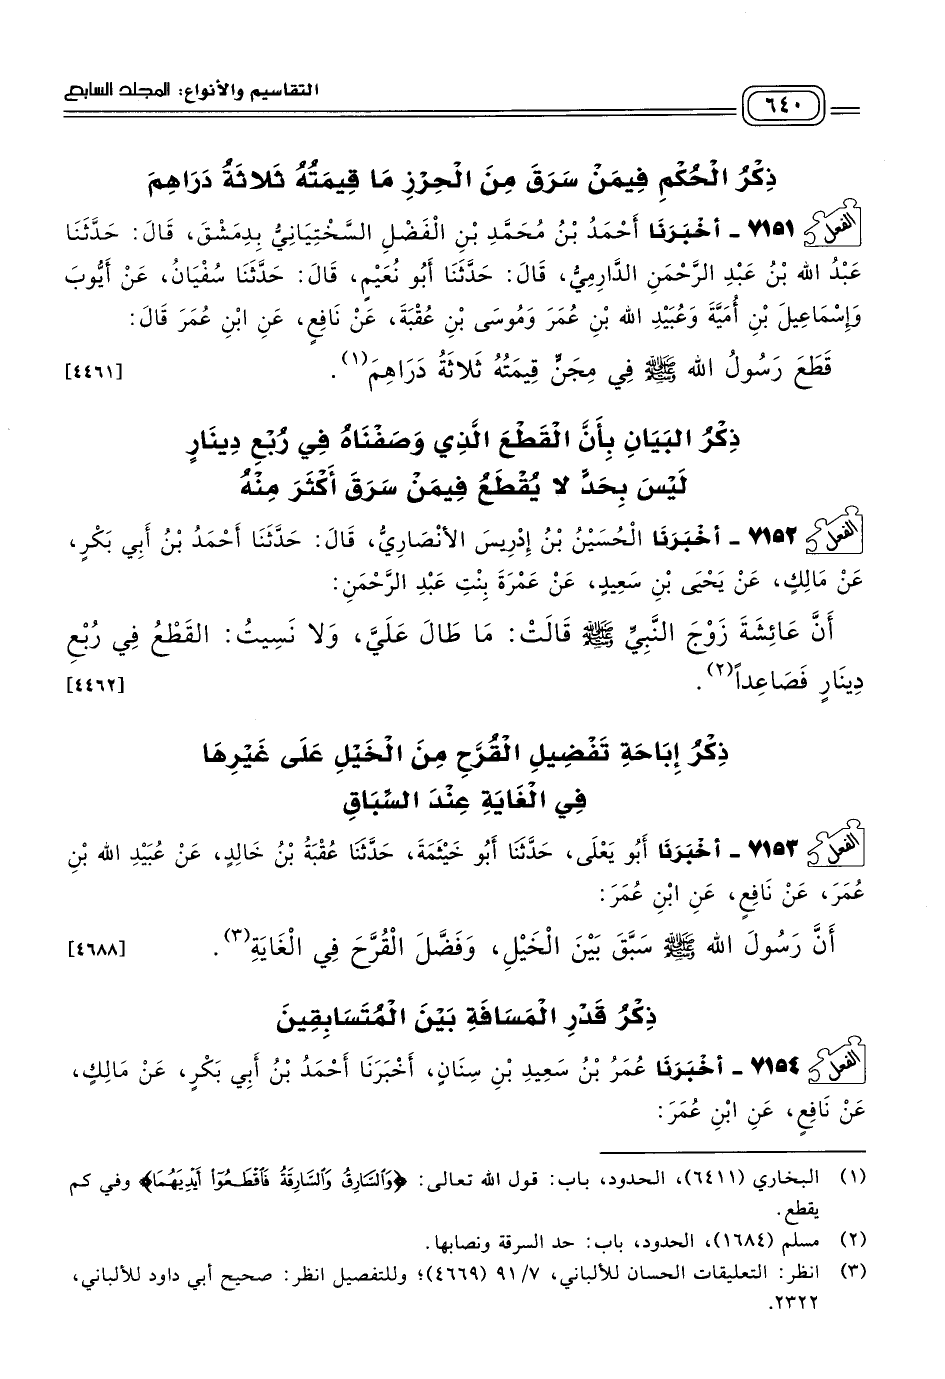 التقاسيم والأنواع: المجلد السابع
٦٤٠
ذِكْرُ الْحُكْمِ فِيمَنْ سَرَقَ مِنَ الْحِرْزِ مَا قِيمَتُهُ ثَلاثَةُ دَرَاهِمَ
الفعل ٧١٥١ - أَخْبَرَنَا أَحْمَدُ بْنُ مُحَمَّدِ بْنِ الْفَضْلِ السَّخْتِيَانِيُّ بِدِمَشْقَ، قَالَ: حَدَّثَنَا
عَبْدُ اللهِ بْنُ عَبْدِ الرَّحْمَنِ الدَّارِمِيُّ، قَالَ: حَدَّثَنَا أَبُو نُعَيْمٍ، قَالَ: حَدَّثَنَا سُفْيَانُ، عَنْ أَيُّوبَ
وَإِسْمَاعِيلَ بْنِ أُمَيَّةَ وَعُبَيْدِ اللهِ بْنِ عُمَرَ وَمُوسَى بْنِ عُقْبَةَ، عَنْ نَافِعٍ، عَنِ ابْنِ عُمَرَ قَالَ:
قَطَعَ رَسُولُ اللهِ ﷺ فِي مِجَنٍّ قِيمَتُهُ ثَلاثَةُ دَرَاهِمَ(١). [٤٤٦١]
ذِكْرُ البَيَانِ بِأَنَّ الْقَطْعَ الَّذِي وَصَفْنَاهُ فِي رُبْعِ دِينَارٍ
لَيْسَ بِحَدٍّ لا يُقْطَعُ فِيمَنْ سَرَقَ أَكْثَرَ مِنْهُ
الفعل ٧١٥٢ - أَخْبَرَنَا الْحُسَيْنُ بْنُ إِدْرِيسَ الأَنْصَارِيُّ، قَالَ: حَدَّثَنَا أَحْمَدُ بْنُ أَبِي بَكْرٍ،
عَنْ مَالِكٍ، عَنْ يَحْيَى بْنِ سَعِيدٍ، عَنْ عَمْرَةَ بِنْتِ عَبْدِ الرَّحْمَنِ:
أَنَّ عَائِشَةَ زَوْجَ النَّبِيِّ ﷺ قَالَتْ: مَا طَالَ عَلَيَّ، وَلا نَسِيتُ: القَطْعُ فِي رُبْعِ
دِينَارٍ فَصَاعِداً(٢). [٤٤٦٢]
ذِكْرُ إِبَاحَةِ تَفْضِيلِ الْقُرَّحِ مِنَ الْخَيْلِ عَلَى غَيْرِهَا
فِي الْغَايَةِ عِنْدَ السِّبَاقِ
الفعل ٧١٥٣ - أَخْبَرَنَا أَبُو يَعْلَى، حَدَّثَنَا أَبُو خَيْثَمَةَ، حَدَّثَنَا عُقْبَةُ بْنُ خَالِدٍ، عَنْ عُبَيْدِ اللهِ بْنِ
عُمَرَ، عَنْ نَافِعٍ، عَنِ ابْنِ عُمَرَ:
أَنَّ رَسُولَ اللهِ ﷺ سَبَّقَ بَيْنَ الْخَيْلِ، وَفَضَّلَ الْقُرَّحَ فِي الْغَايَةِ(٣). [٤٦٨٨]
ذِكْرُ قَدْرِ الْمَسَافَةِ بَيْنَ الْمُتَسَابِقِينَ
الفعل ٧١٥٤ - أَخْبَرَنَا عُمَرُ بْنُ سَعِيدِ بْنِ سِنَانٍ، أَخْبَرَنَا أَحْمَدُ بْنُ أَبِي بَكْرٍ، عَنْ مَالِكٍ،
عَنْ نَافِعٍ، عَنِ ابْنِ عُمَرَ:
(١) البخاري (٦٤١١)، الحدود، باب: قول الله تعالى: ﴿وَٱلسَّارِقُ وَٱلسَّارِقَةُ فَٱقْطَعُوٓا۟ أَيْدِيَهُمَا﴾ وفي كم
يقطع.
(٢) مسلم (١٦٨٤)، الحدود، باب: حد السرقة ونصابها.
(٣) انظر: التعليقات الحسان للألباني، ٩١/٧ (٤٦٦٩)؛ وللتفصيل انظر: صحيح أبي داود للألباني،
٢٣٢٢.